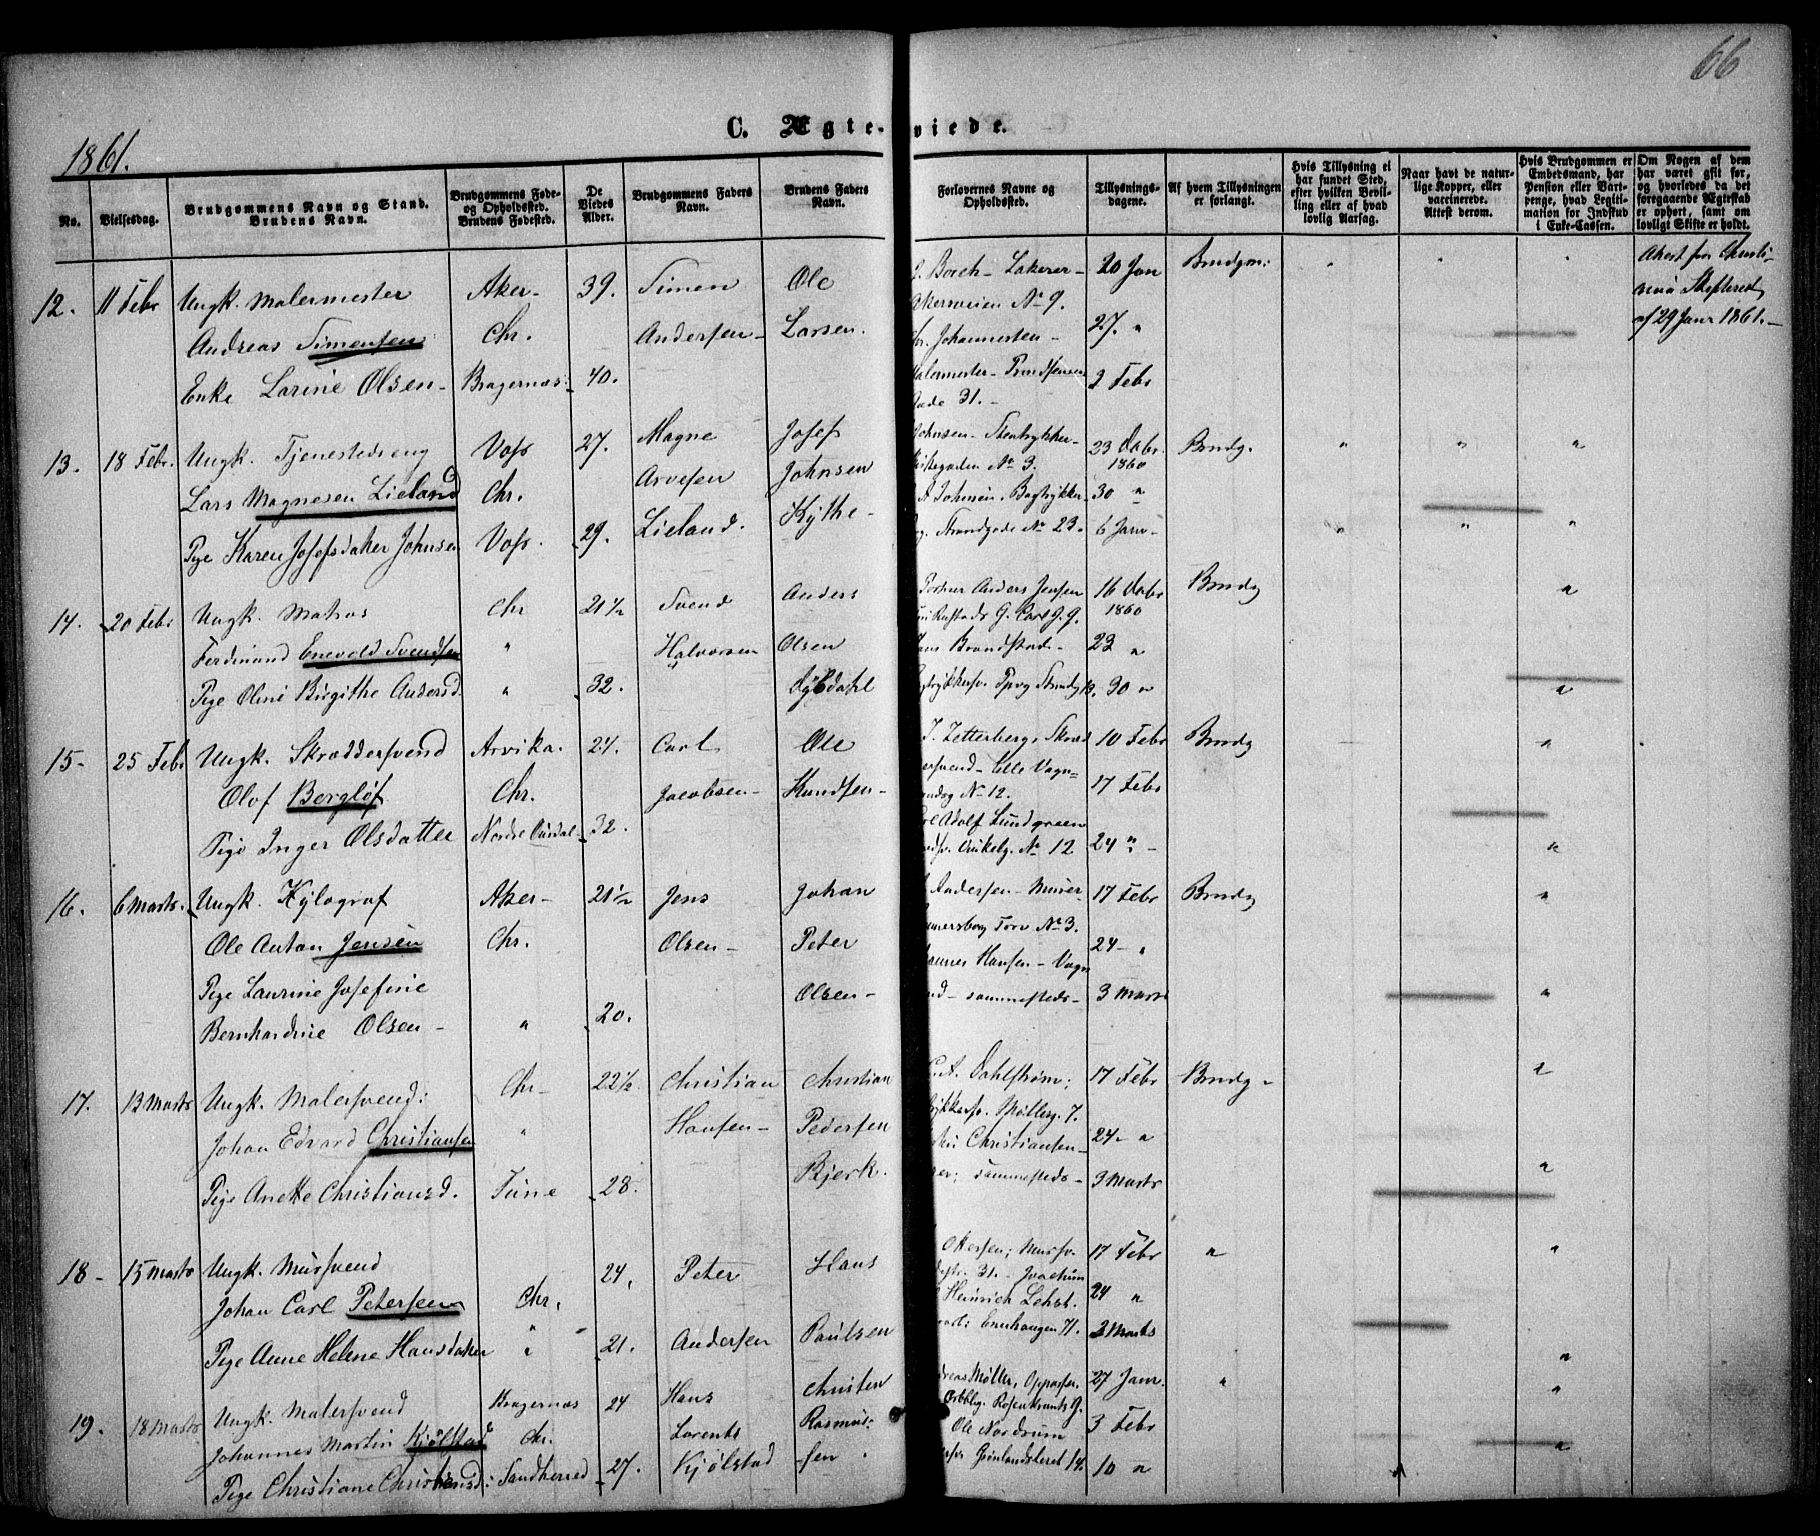 66
1861.
C. Ægte-viede.
No.
Vielsesdag.
Brudgommens Navn og Stand.
Brudens Navn.
Brudgommens Føde-
og Opholdssted.
Brudens Fødested.
De
Viedes
Alder.
Brudgommens Faders
Navn.
Brudens Faders
Navn.
Forlovernes Navne og
Opholdssted.
Tillysnings-
dagene.
Af hvem Tillysningen
er forlangt.
Hvis Tillysning ei
har fundet Sted,
efter hvilken Bevil-
ling eller af hvad
lovlig Aarsag.
Naar havt de natur-
lige Kopper, eller
vaccinerede.
Attest derom.
Hvis Brudgommen er
Embedsmand, har
Pension eller Vart-
penge, hvad Legiti-
mation for Indskud
i Enke-Cassen.
Om Nogen af dem
har været gift før,
og hvorledes da det
foregaaende Ægteskab
er ophørt, samt om
lovligt Skifte er holdt.
12. 11 Febr Ungk. Malermester Aker- 39. Simen Ole Borch- Lakerer- 20 Jan Brudgm:
Akersveien No 9.
Andreas Simensen Chr. Andersen- Larsen. Johannesen- 27. "
Enke Larine Olsen- Bragernæs. 40. Malermester- 2 Febr
Gade 31.-
af 29 Janr 1861.-
13. 18 Febr. Ungk. Tjenestedreng Voss 27. Magne Josef Johnsen- Stentrykker- 23 Dcbr. Brudg.
No 3. 1860
Lars Magnesen Lieland Chr. Arvesen Johnsen Johnsen. Bogtrykker- 30 "
Pige Karen Josefsdatter Johnsen Voss. 29. Lieland. Kythe- Strandgade No 23. 6 Janr-
14. 20 Febr Ungk. Matros Chr 21½ Svend Anders Anders Jensen 16 Dcbr Brudg
1860
Ferdinand Enevold Svendsen " Halvorsen Olsen Brandstad- 23 "
Pige Oline Birgithe Andersd. " 32. Dybdahl 30 "
15- 25 Febr Ungk. Skræddersvend Arvika. 24. Carl Ole J. Zetterberg, Skræd 10 Febr Brudg
dersvend- Lille Vogn-
Olof Bergløf Chr. Jacobsen- Knudsen- No 12. 17 Febr
Pige Inger Olsdatter Nordre Aurdal- 32. Adolf Lundgreen
No 12 24 " -
16. 6 Marts. Ungk. Xylograf Aker- 21½ Jens Johan Andersen- Murer 17 Febr Brudg
Torv No 3.
Ole Anton Jensen Chr. Olsen- Peter Hansen- Vogn 24- "
Pige Laurine Josefine Olsen- sammesteds- 3 Marts
Bernhardine Olsen- " 20.
17. 13 Marts Ungk. Malersvend: Chr- 22½ Christian Christian Dahlstrøm; 17 Febr Brudg-
Møllerg. 7.
Johan Edvard Christiansen " Hansen- Pedersen Christiansen- 24- "
Pige Anette Christiansd. Tune 28. Bjerk. sammesteds- 3 Marts
18- 15 Marts Ungk. Mursvend 24, Peter Hans Ottersen; Mursv. 17 Febr "
31.- Joachim
Johan Carl Petersen Chr. Heinrich Lehst. 24 "
Pige Anne Helene Hansdatter " 21. Andersen Paulsen Enerhaugen 71. 2 Marts
19. 18 Marts Ungk. Malersvend Bragernæs 24 Hans Christen Møller, Oppasser. 27 Janr. "
Rosenkrants G.
Johannes Martin Kjølstad Chr. Lorents Rasmus- Ole Nordrum 3 Febr
Pige Christiane Christensd: Sandherred 27. Kjølstad sen Grønlandsleret 14. 10 "